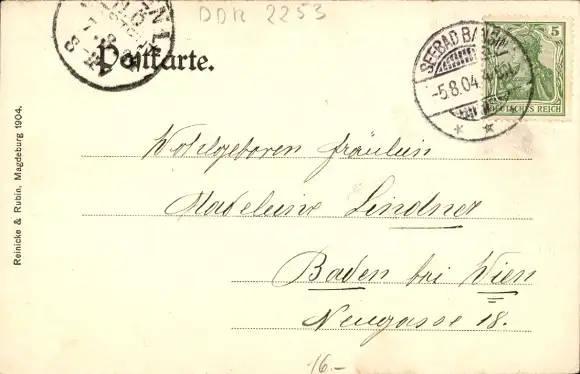 DDR 2253
Postkarte.
SEEBAD
-5.8.04
5
DEUTSCHES REICH
Wohlgeboren Fräulein
Madeleine Lindner
Baden bei Wien
Neugasse 18.
16.-
Reinicke & Rubin, Magdeburg 1904.